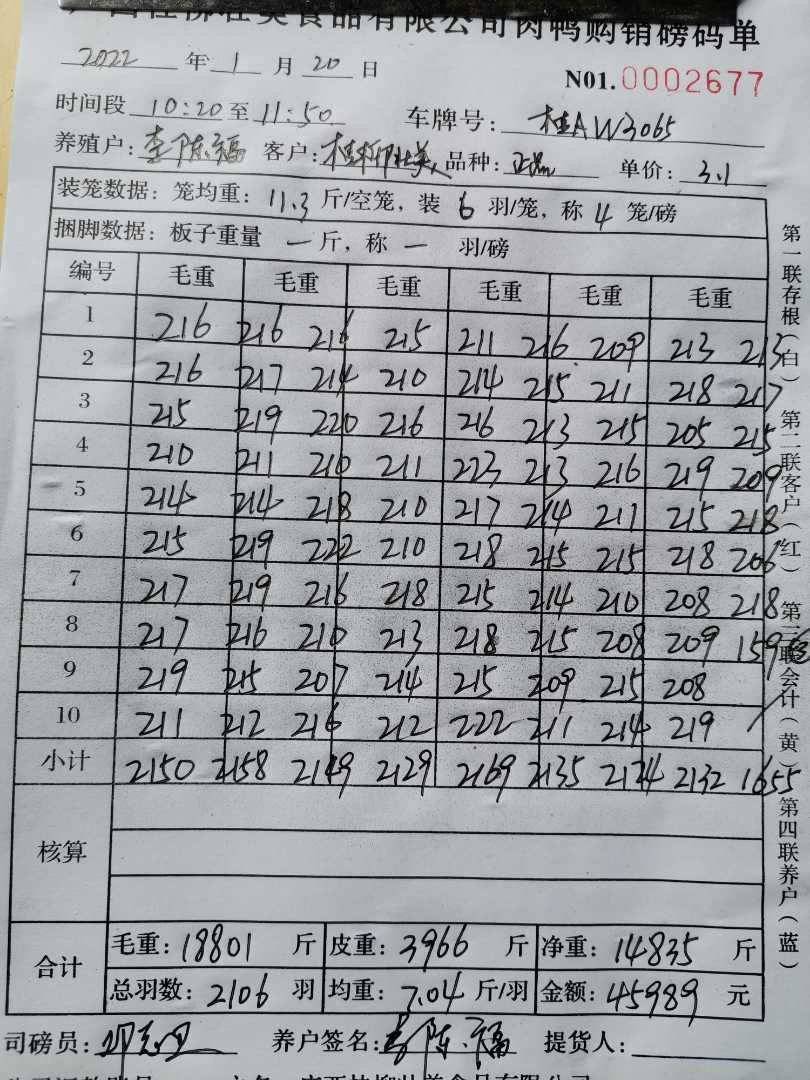 食品有限公司肉鸭购销磅码单
2022 年 1 月 20 日 N01.0002677
时间段 10:20 至 11:50 车牌号: 桂AW3065
养殖户: 李陈福 客户: 桂柳壮美 品种: 正品 单价: 3.1
装笼数据: 笼均重: 11.3 斤/空笼, 装 6 羽/笼, 称 4 笼/磅
捆脚数据: 板子重量 一 斤, 称 一 羽/磅
编号 毛重 毛重 毛重 毛重 毛重 毛重
1 216 216 216 215 211 216 209 213 213
2 216 217 214 210 214 215 211 218 217
3 215 219 220 216 216 213 215 205 215
4 210 211 210 211 223 213 216 219 209
5 214 214 218 210 217 214 211 215 218
6 215 219 222 210 218 215 215 218 206
7 217 219 216 218 215 214 210 208 218
8 217 216 210 213 218 215 208 209 159
9 219 215 207 214 215 209 215 208
10 211 212 216 212 222 211 214 219
小计 2150 2158 2149 2129 2169 2135 2124 2132 1655
核算
合计 毛重: 18801 斤 皮重: 3966 斤 净重: 14835 斤
总羽数: 2106 羽 均重: 7.04 斤/羽 金额: 45989 元
司磅员: 养户签名: 李陈福 提货人:
第一联存根(白) 第二联客户(红) 第三联会计(黄) 第四联养户(蓝)